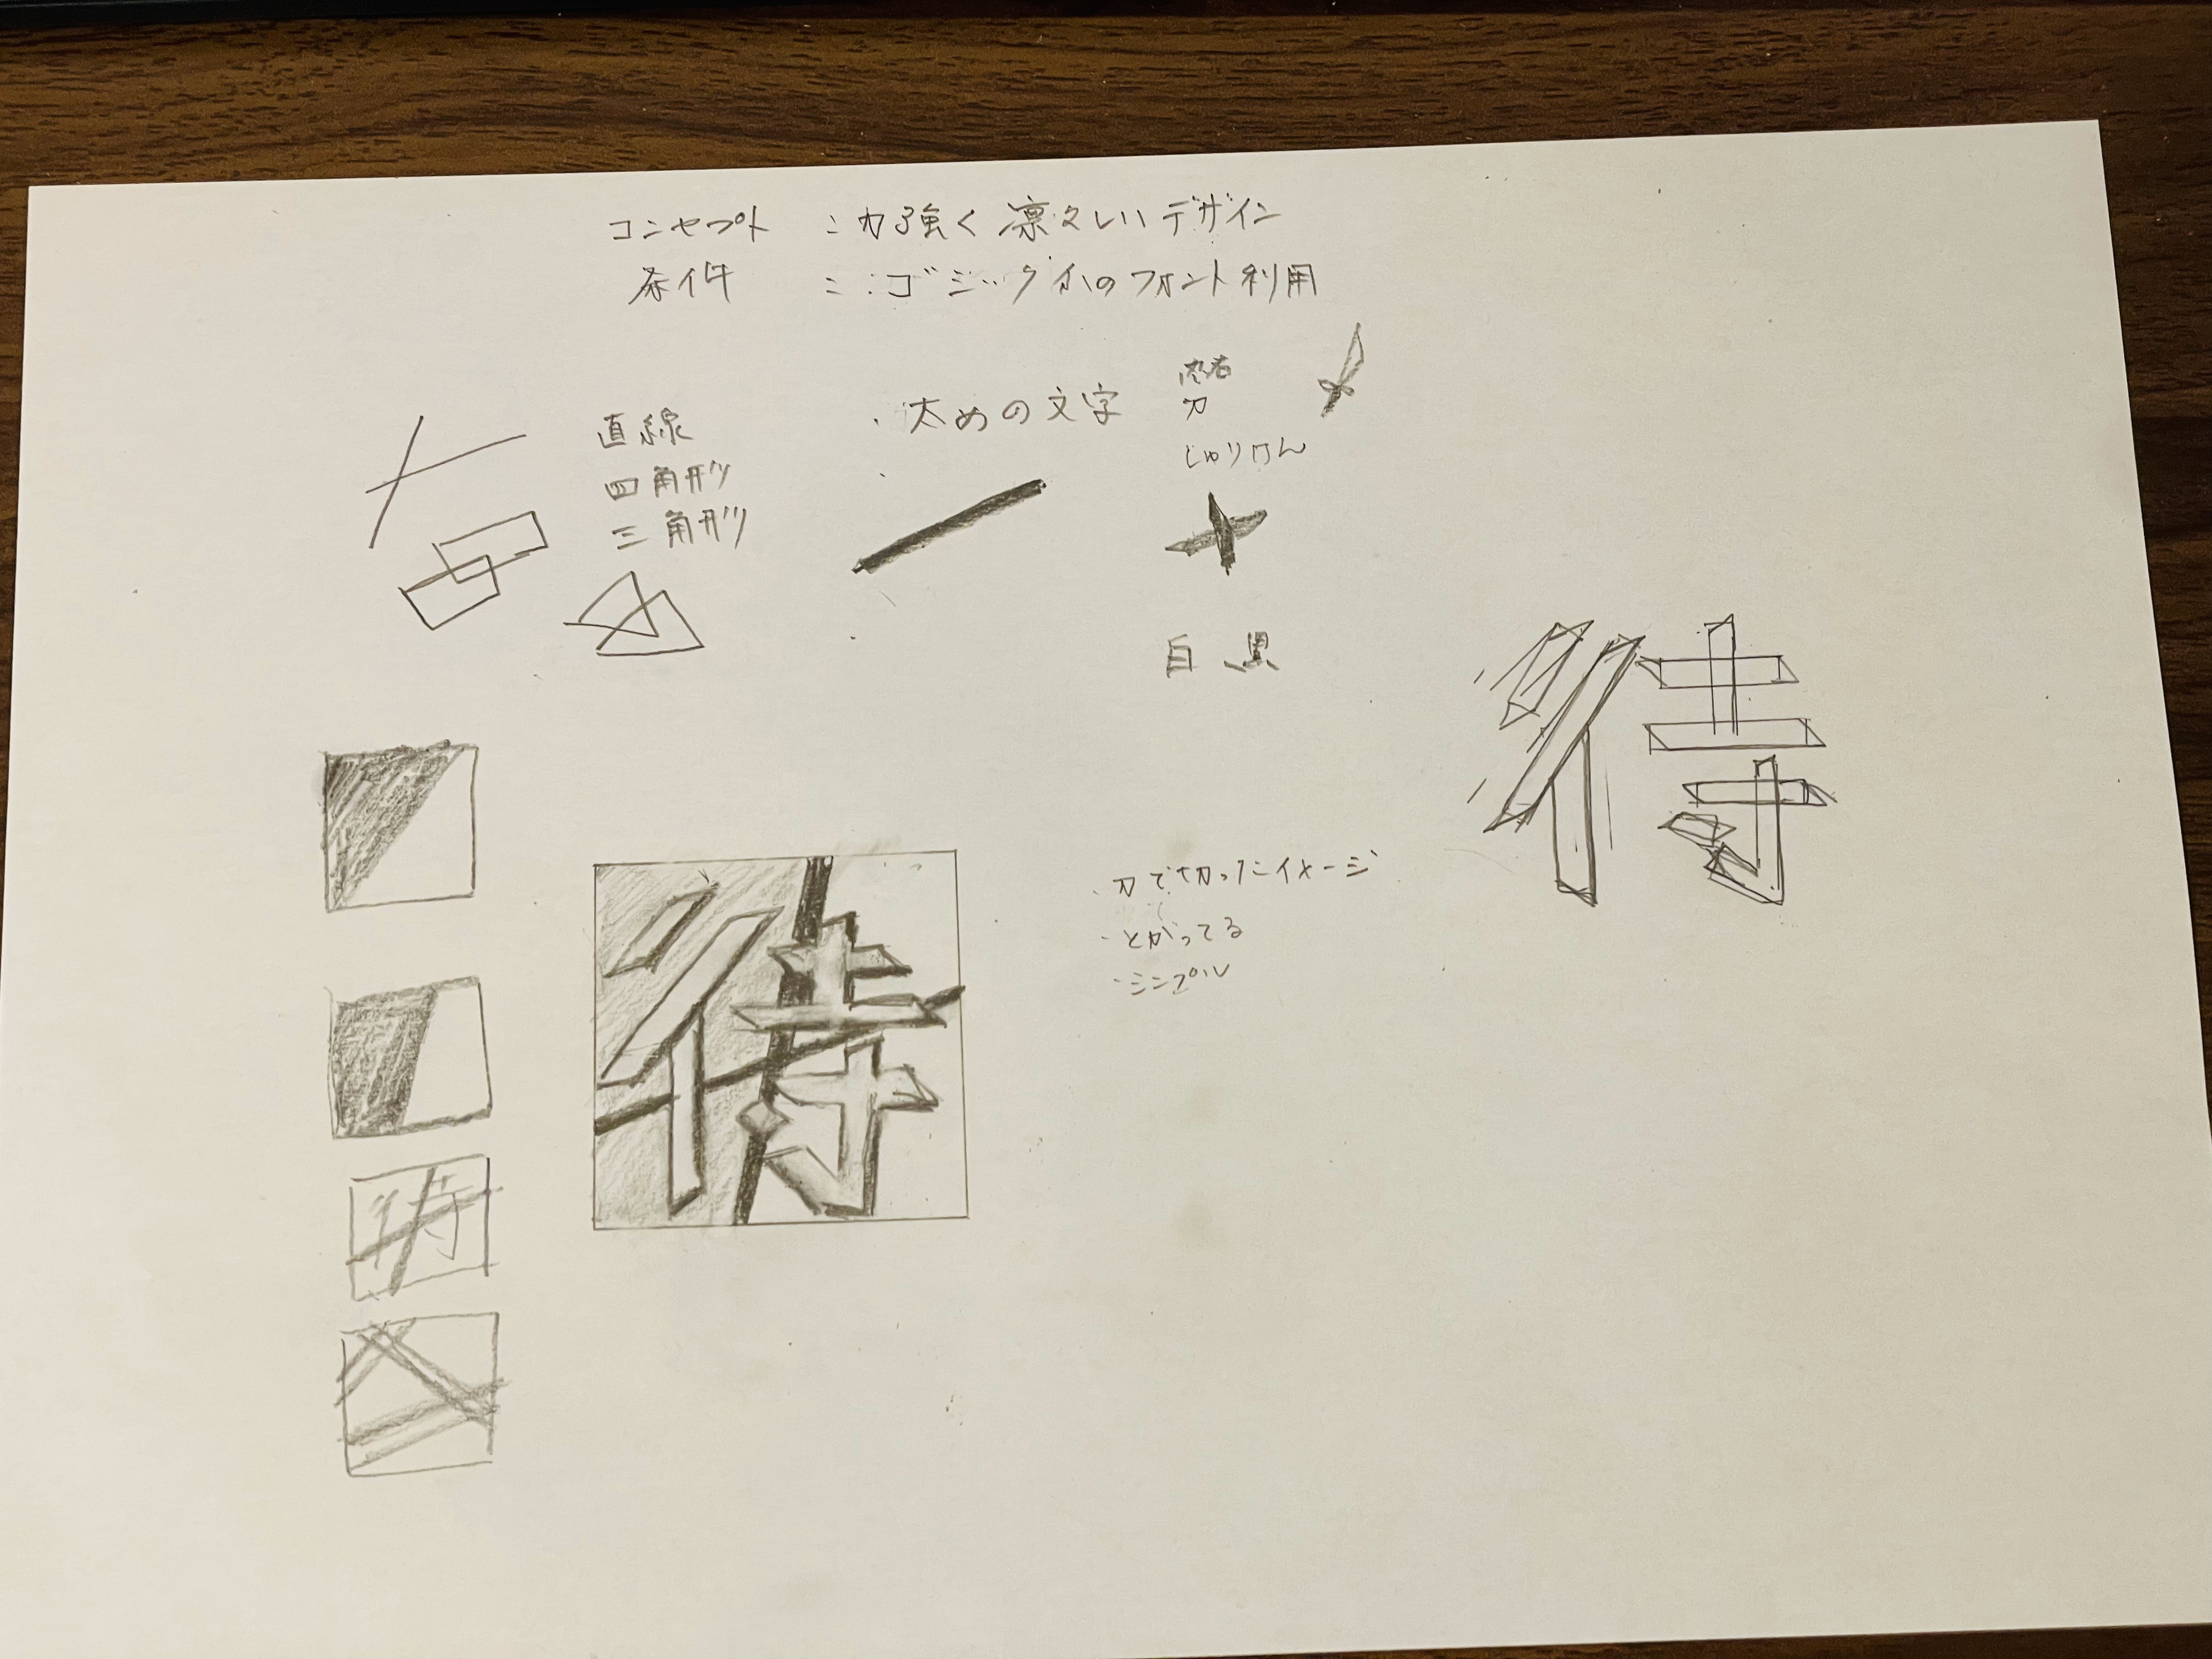 コンセプト : 力強く凛々しいデザイン
条件 : ゴシック体のフォント利用
直線
四角形
三角形
・太めの文字
忍者
刀
しゅりけん
白 黒
待
待
待
・刀で切ったイメージ
・とがってる
・シンプル